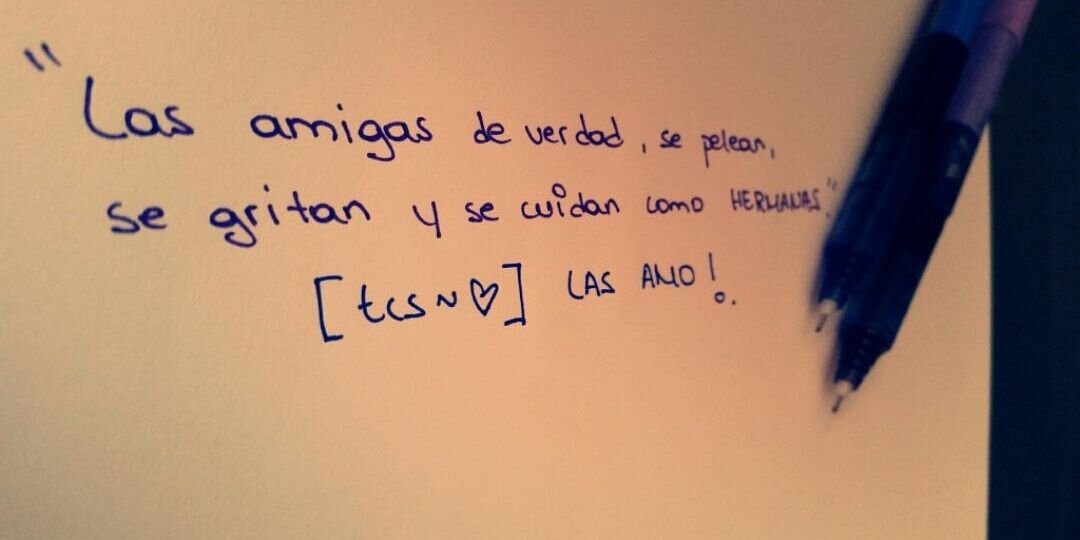 "Las amigas de verdad, se pelean,
se gritan y se cuidan como HERMANAS."
[tcs~♡] LAS AMO!